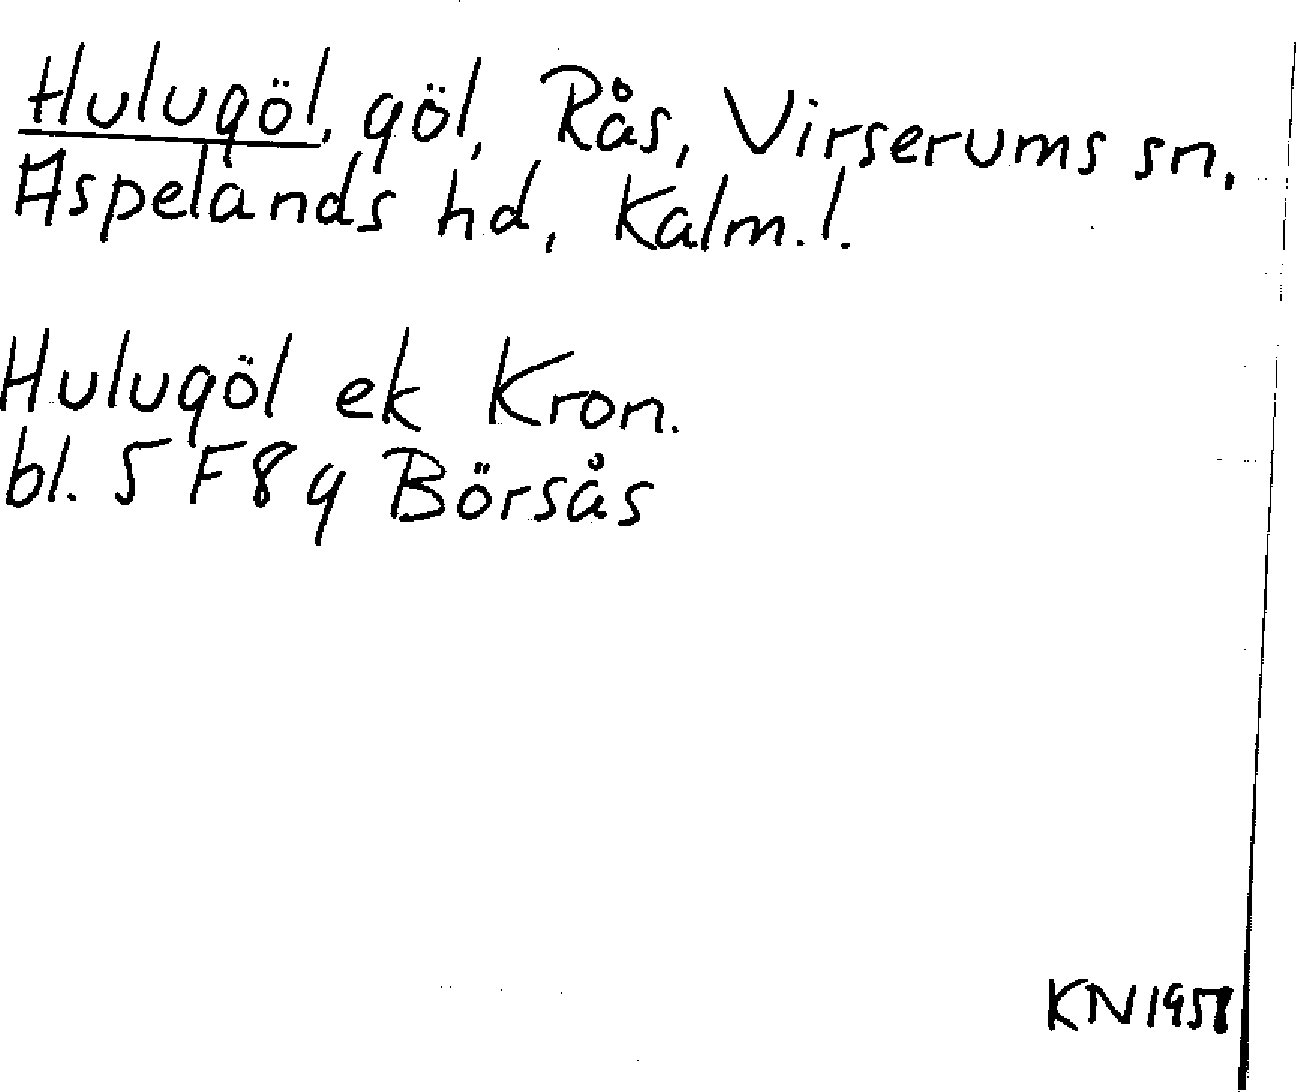 Hulugöl, göl, Rås, Virserums sn,
Aspelands hd, Kalm.l.
Hulugöl ek Kron.
bl. 5 F 8 g Börsås
KN